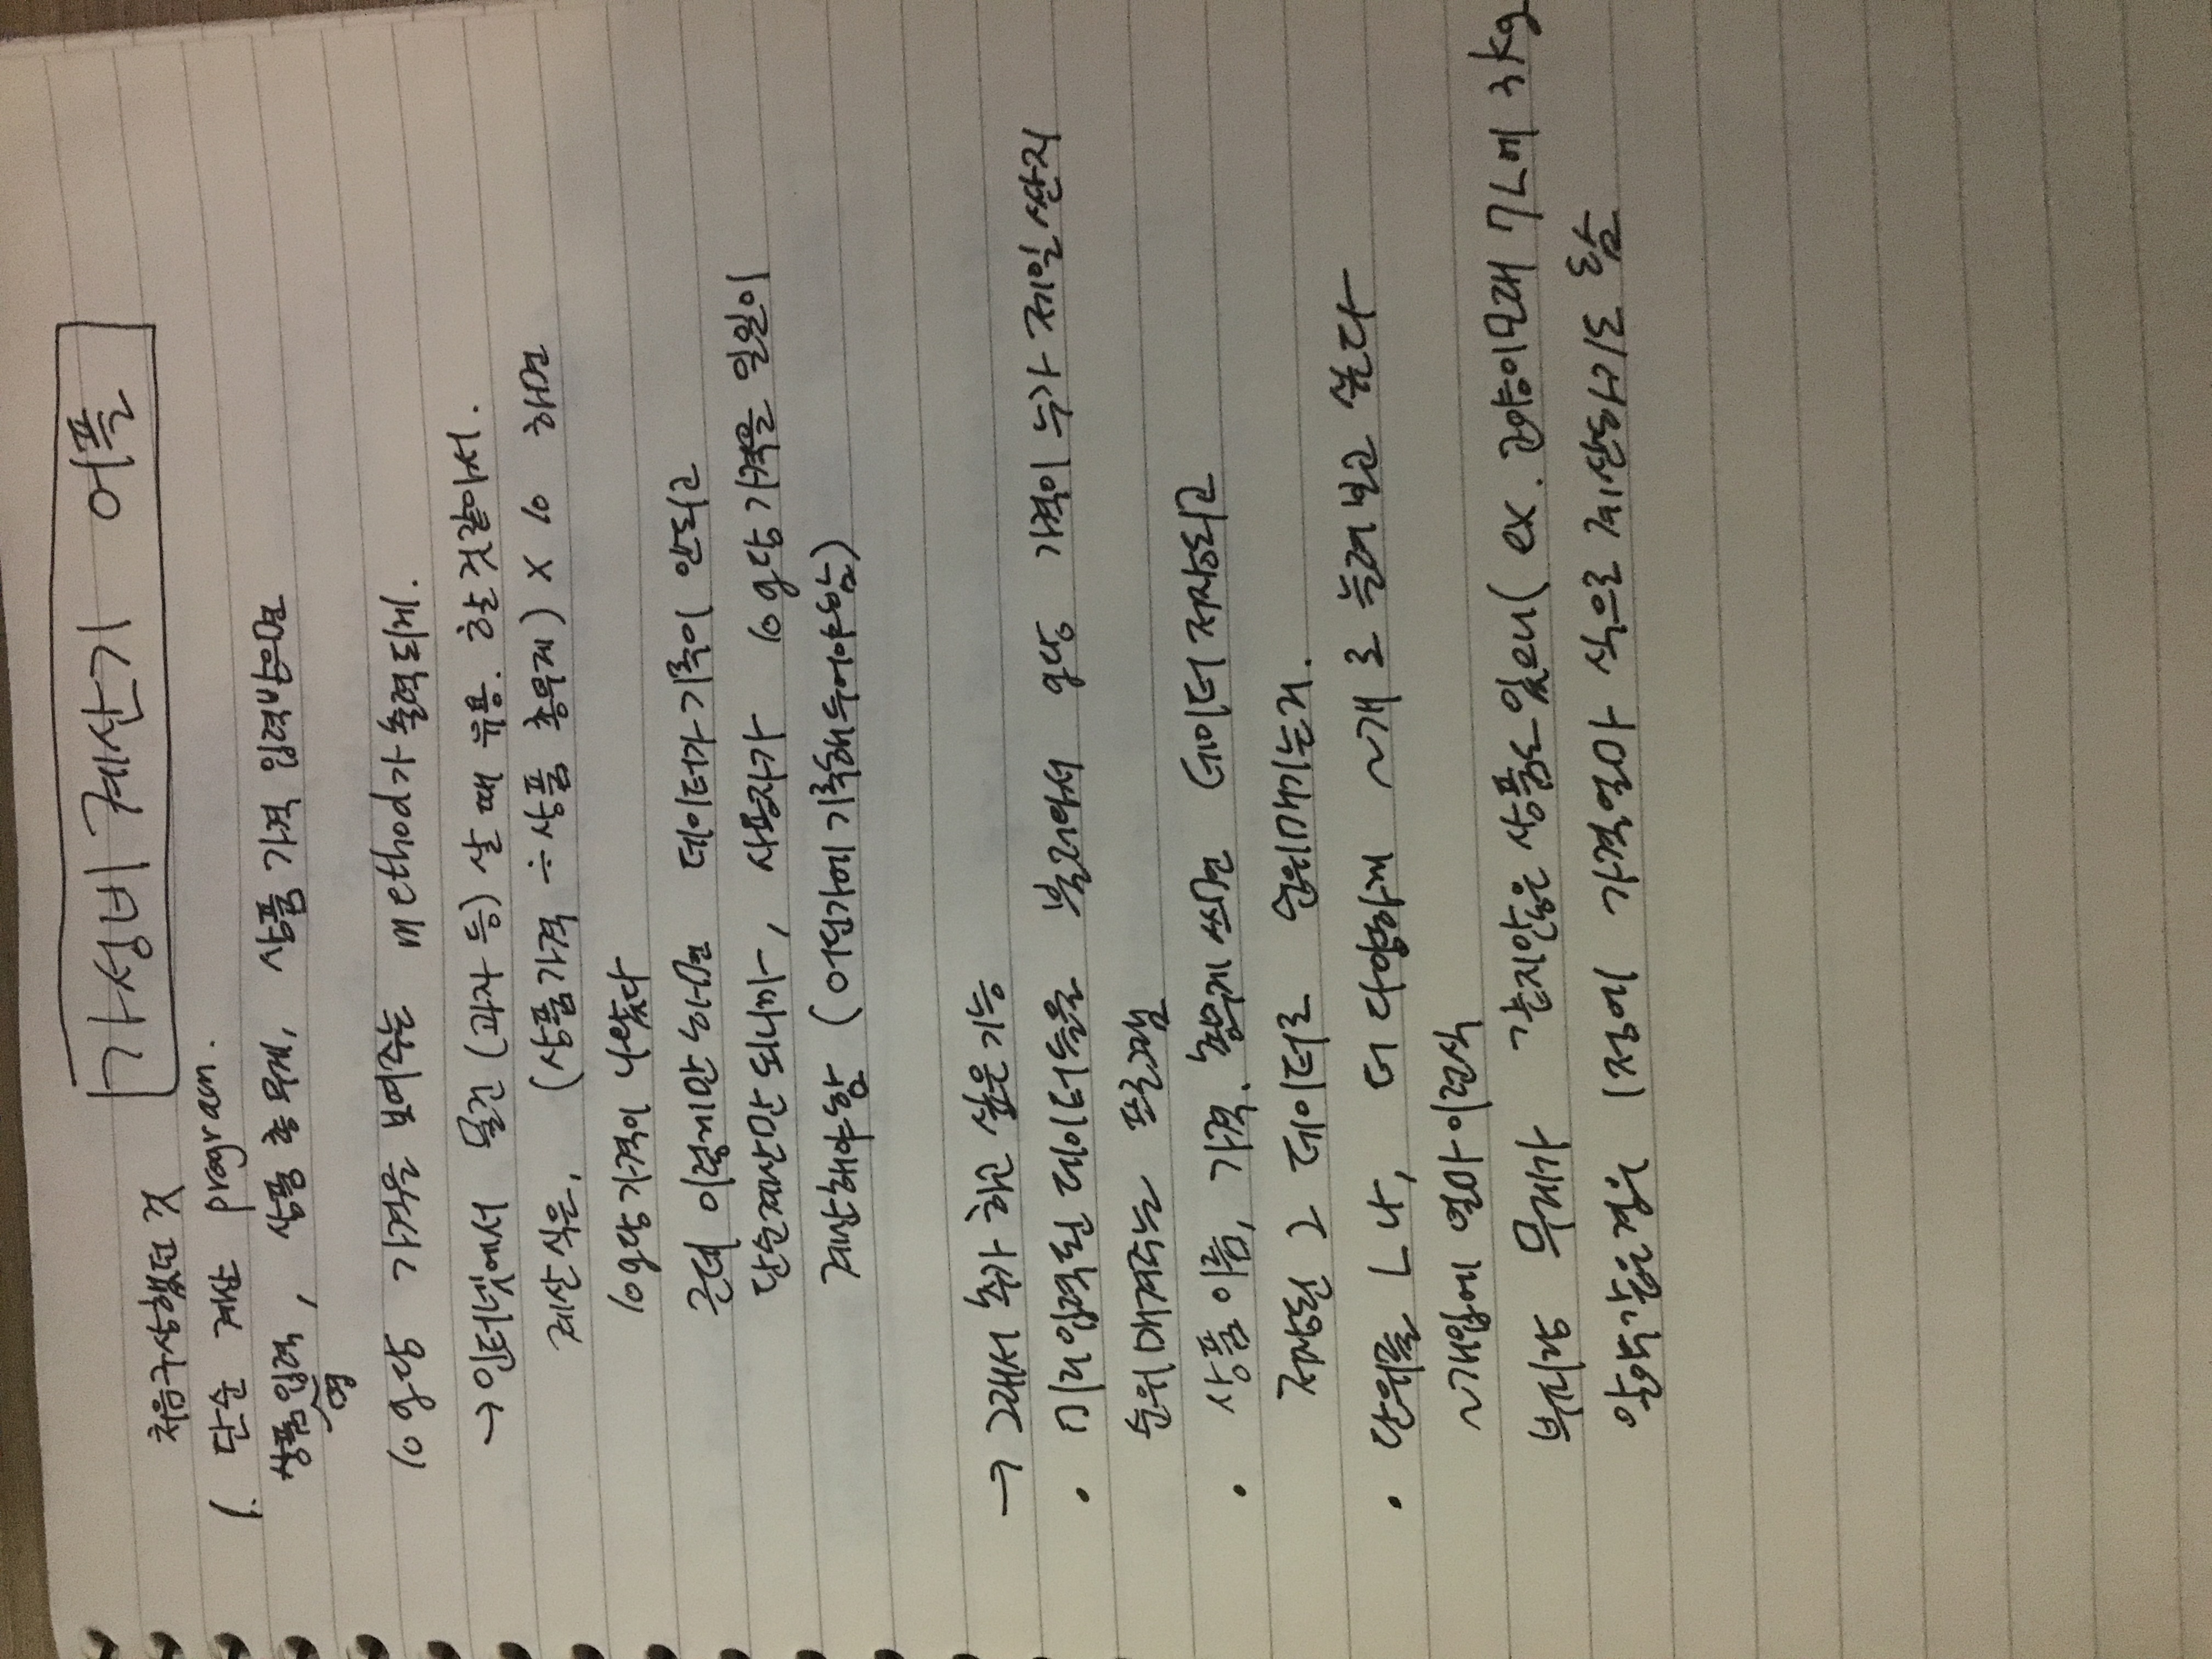 가성비 계산기 어플
처음구상했던 것
1. 단순 계산 program.
상품명입력, 상품 총 무게, 상품 가격 입력받으면
10g당 가격을 보여주는 method가 출력되게.
→ 인터넷에서 물건 (과자 등) 살 때 유용. 할 것같아서.
계산 식은, (상품가격 ÷ 상품 총무게) × 10 하면
10g당 가격이 나왔다
근데 이렇게만 하면 데이터가 기록이 안되고
단순계산만 되니까, 사용자가 10g당 가격을 일일이
계산해야함 (어딘가에 기록해두어야함)
→ 그래서 추가 하고 싶은 기능
• 미리 입력된 데이터들을 불러와서 g당 가격이 누가 제일 싼지
순위 매겨주는 프로그램
• 상품 이름, 가격. 총무게 쓰면 데이터 저장되고
저장된 그 데이터로 순위매기는거.
• 단위를 L 나, 더 다양하게 ~개 로 늘려 보고 싶다
~개입에 얼마 이런식
부피랑 무게가 같지않은 상품도 있으니( ex. 고양이모래 7L에 3kg
알약같은경우 1정에 가격얼마 식으로 계산하기도 함